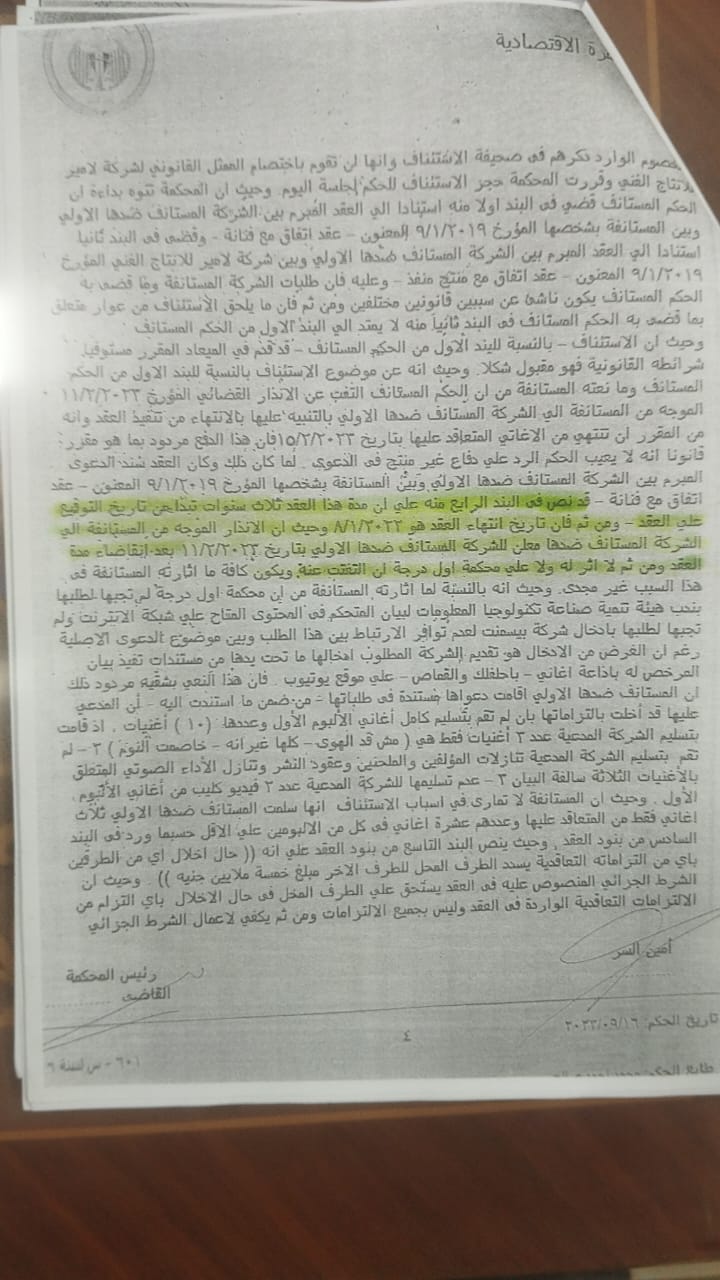 رة الاقتصادية
خصوم الوارد ذكرهم فى صحيفة الاستئناف وانها لن تقوم باختصام الممثل القانوني لشركة لامير
للانتاج الفني وقررت المحكمة حجز الاستئناف للحكم لجلسة اليوم. وحيث ان المحكمة تنوه بداءة ان
الحكم المستانف قضي فى البند اولا منه استنادا الي العقد المبرم بين الشركة المستانف ضدها الاولي
وبين المستانفة بشخصها المؤرخ ٩/١/٢٠١٩ المعنون – عقد اتفاق مع فنانة – وقضى فى البند ثانيا
استنادا الي العقد المبرم بين الشركة المستانف ضدها الاولي وبين شركة لامير للانتاج الفني المؤرخ
٩/١/٢٠١٩ المعنون – عقد اتفاق مع منتج منفذ – وعليه فان طلبات الشركة المستانفة وما قضي به
الحكم المستانف يكون ناشئ عن سببين قانونين مختلفين ومن ثم فان ما يلحق الاستئناف من عوار متعلق
بما قضى به الحكم المستانف فى البند ثانيا منه لا يمتد الي البند الاول من الحكم المستانف
وحيث ان الاستئناف – بالنسبة للبند الاول من الحكم المستانف – قد قدم في الميعاد المقرر مستوفيا
شرائطه القانونية فهو مقبول شكلا. وحيث انه عن موضوع الاستئناف بالنسبة للبند الاول من الحكم
المستانف وما نعته المستانفة من ان الحكم المستانف التفت عن الانذار القضائي المؤرخ ١١/٢/٢٠٢٣
الموجه من المستانفة الي الشركة المستانف ضدها الاولي بالتنبيه عليها بالانتهاء من تنفيذ العقد وانه
من المقرر ان تنتهي من الاغاني المتعاقد عليها بتاريخ ١٥/٢/٢٠٢٣ فان هذا الدفع مردود بما هو مقرر:
قانونا انه لا يعيب الحكم الرد علي دفاع غير منتج فى الدعوى. لما كان ذلك وكان العقد سند الدعوى
المبرم بين الشركة المستانف ضدها الاولي وبين المستانفة بشخصها المؤرخ ٩/١/٢٠١٩ المعنون – عقد
اتفاق مع فنانة – قد نص فى البند الرابع منه علي ان مدة هذا العقد ثلاث سنوات تبدا من تاريخ التوقيع
علي العقد – ومن ثم فان تاريخ انتهاء العقد هو ٨/١/٢٠٢٢ وحيث ان الانذار الموجه من المستانفة الي
الشركة المستانف ضدها معلن للشركة المستانف ضدها الاولي بتاريخ ١١/٢/٢٠٢٢ بعد انقضاء مدة
العقد ومن ثم لا اثر له ولا علي محكمة اول درجة ان التفتت عنه ويكون كافة ما اثارته المستانفة فى
هذا السبب غير مجدى. وحيث انه بالنسبة لما اثارته المستانفة من ان محكمة اول درجة لم تجبها لطلبها
بندب هيئة تنمية صناعة تكنولوجيا المعلومات لبيان المتحكم فى المحتوى المتاح علي شبكة الانترنت ولم
تجبها لطلبها بادخال شركة بيسمنت لعدم توافر الارتباط بين هذا الطلب وبين موضوع الدعوى الاصلية
رغم ان الغرض من الادخال هو تقديم الشركة المطلوب ادخالها ما تحت يدها من مستندات تفيد بيان
المرخص له باذاعة اغاني – باحلفلك والقماص – علي موقع يوتيوب. فان هذا النعي بشقيه مردود ذلك
ان المستانف ضدها الاولي اقامت دعواها مستندة فى طلباتها – من ضمن ما استندت اليه – ان المدعي
عليها قد أخلت بالتزاماتها بان لم تقم بتسليم كامل أغاني الألبوم الأول وعددها (١٠) أغنيات. اذ قامت
بتسليم الشركة المدعية عدد ٣ أغنيات فقط هي (مش قد الهوى – كلها غيرانه – خاصمت النوم) ٢ – لم
تقم بتسليم الشركة المدعية تنازلات المؤلفين والملحنين وعقود النشر وتنازل الأداء الصوتي المتعلق
بالأغنيات الثلاثة سالفة البيان ٣ – عدم تسليمها للشركة المدعية عدد ٢ فيديو كليب من أغاني الألبوم
الأول. وحيث ان المستانفة لا تمارى في اسباب الاستئناف انها سلمت المستانف ضدها الاولي ثلاث
اغاني فقط من المتعاقد عليها وعددهم عشرة اغاني فى كل من الالبومين علي الاقل حسبما ورد فى البند
السادس من بنود العقد. وحيث ينص البند التاسع من بنود العقد علي انه (( حال اخلال اي من الطرفين
باي من التزاماته التعاقدية يسدد الطرف المخل للطرف الاخر مبلغ خمسة ملايين جنيه )). وحيث ان
الشرط الجزائي المنصوص عليه فى العقد يستحق علي الطرف المخل فى حال الاخلال باي التزام من
الالتزامات التعاقدية الواردة فى العقد وليس بجميع الالتزامات ومن ثم يكفي لاعمال الشرط الجزائي
أمين السر
رئيس المحكمة
القاضى
تاريخ الحكم: ٢٠٢٣/٠٩/١٦
٤
٦٠١ – س لسنة
طابع الحكم: